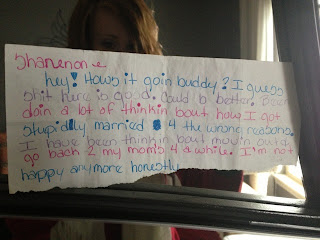 Shannon
hey! Hows it goin buddy? I guess
shit here is good. Could b better. Been
doin a lot of thinkin bout how I got
stupidly married 4 the wrong reasons.
I have been thinkin bout movin outa
go back 2 my mom's 4 a while. I'm not
happy anymore honestly